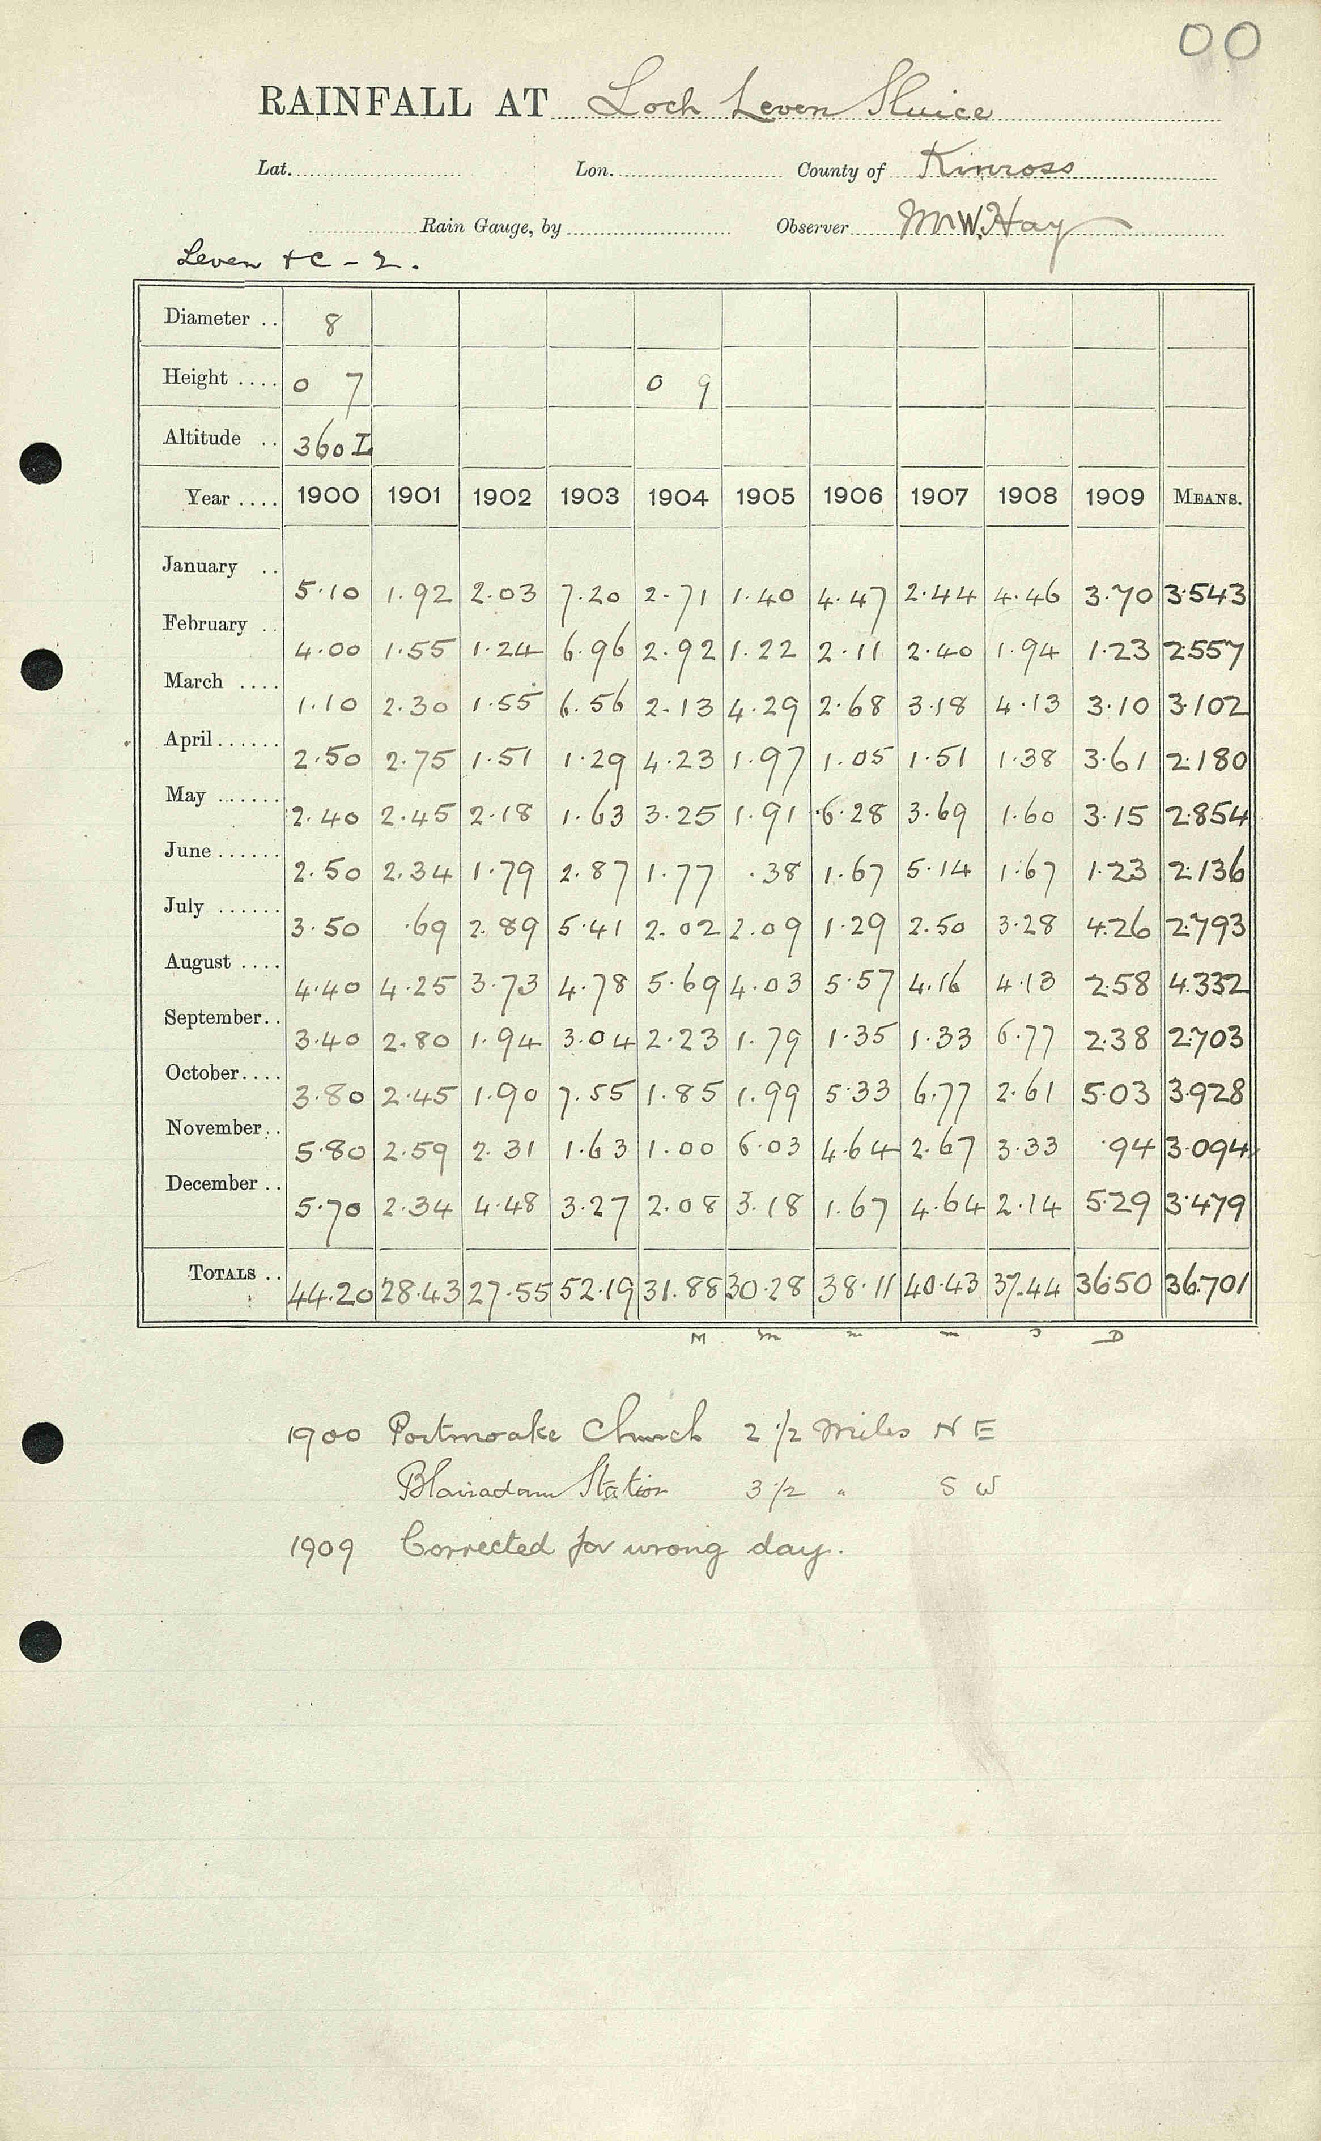 00
RAINFALL AT Loch Leven Sluice
Lat. Lon. County of Kinross
Rain Gauge, by Observer Mr W. Hay
Leven &c - 2.
Diameter .. 8
Height .... 0 7 0 9
Altitude .. 360 I
Year .... 1900 1901 1902 1903 1904 1905 1906 1907 1908 1909 MEANS.
January .. 5.10 1.92 2.03 7.20 2.71 1.40 4.47 2.44 4.46 3.70 3.543
February .. 4.00 1.55 1.24 6.96 2.92 1.22 2.11 2.40 1.94 1.23 2.557
March .... 1.10 2.30 1.55 6.56 2.13 4.29 2.68 3.18 4.13 3.10 3.102
April...... 2.50 2.75 1.51 1.29 4.23 1.97 1.05 1.51 1.38 3.61 2.180
May ...... 2.40 2.45 2.18 1.63 3.25 1.91 6.28 3.69 1.60 3.15 2.854
June...... 2.50 2.34 1.79 2.87 1.77 .38 1.67 5.14 1.67 1.23 2.136
July ...... 3.50 .69 2.89 5.41 2.02 2.09 1.29 2.50 3.28 4.26 2.793
August .... 4.40 4.25 3.73 4.78 5.69 4.03 5.57 4.16 4.13 2.58 4.332
September.. 3.40 2.80 1.94 3.04 2.23 1.79 1.35 1.33 6.77 2.38 2.703
October.... 3.80 2.45 1.90 7.55 1.85 1.99 5.33 6.77 2.61 5.03 3.928
November.. 5.80 2.59 2.31 1.63 1.00 6.03 4.64 2.67 3.33 .94 3.094
December .. 5.70 2.34 4.48 3.27 2.08 3.18 1.67 4.64 2.14 5.29 3.479
TOTALS .. 44.20 28.43 27.55 52.19 31.88 30.28 38.11 40.43 37.44 36.50 36.701
M m m m J D
1900 Portmoake Church 2 1/2 Miles N E
Blairadam Station 3 1/2 " S W
1909 Corrected for wrong day.